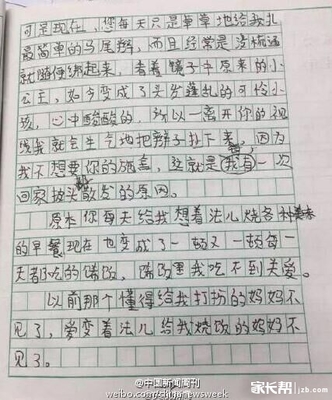 可是现在，您每天只是草草地给我扎
最简单的马尾辫，而且经常是没梳通
就随便绑起来，看着镜子中原来的小
公主，如今变成了头发蓬乱的可怜小
孩，心中酸酸的，所以一离开你的视
线我就会生气地把辫子扑下来，因为
我不想要你的施舍，这就是我有一次
回家披头散发的原因。
原本你每天给我想着法儿烧各种美味
的早餐现在也变成了一顿又一顿每一
天都吃的端饭，端饭里我吃不到关爱。
以前那个懂得给我打扮的妈妈不
见了，爱变着法儿给我烧饭的妈妈不
见了。
@中国新闻周刊
weibo.com/chinanewsweek
家长帮 jzb.com